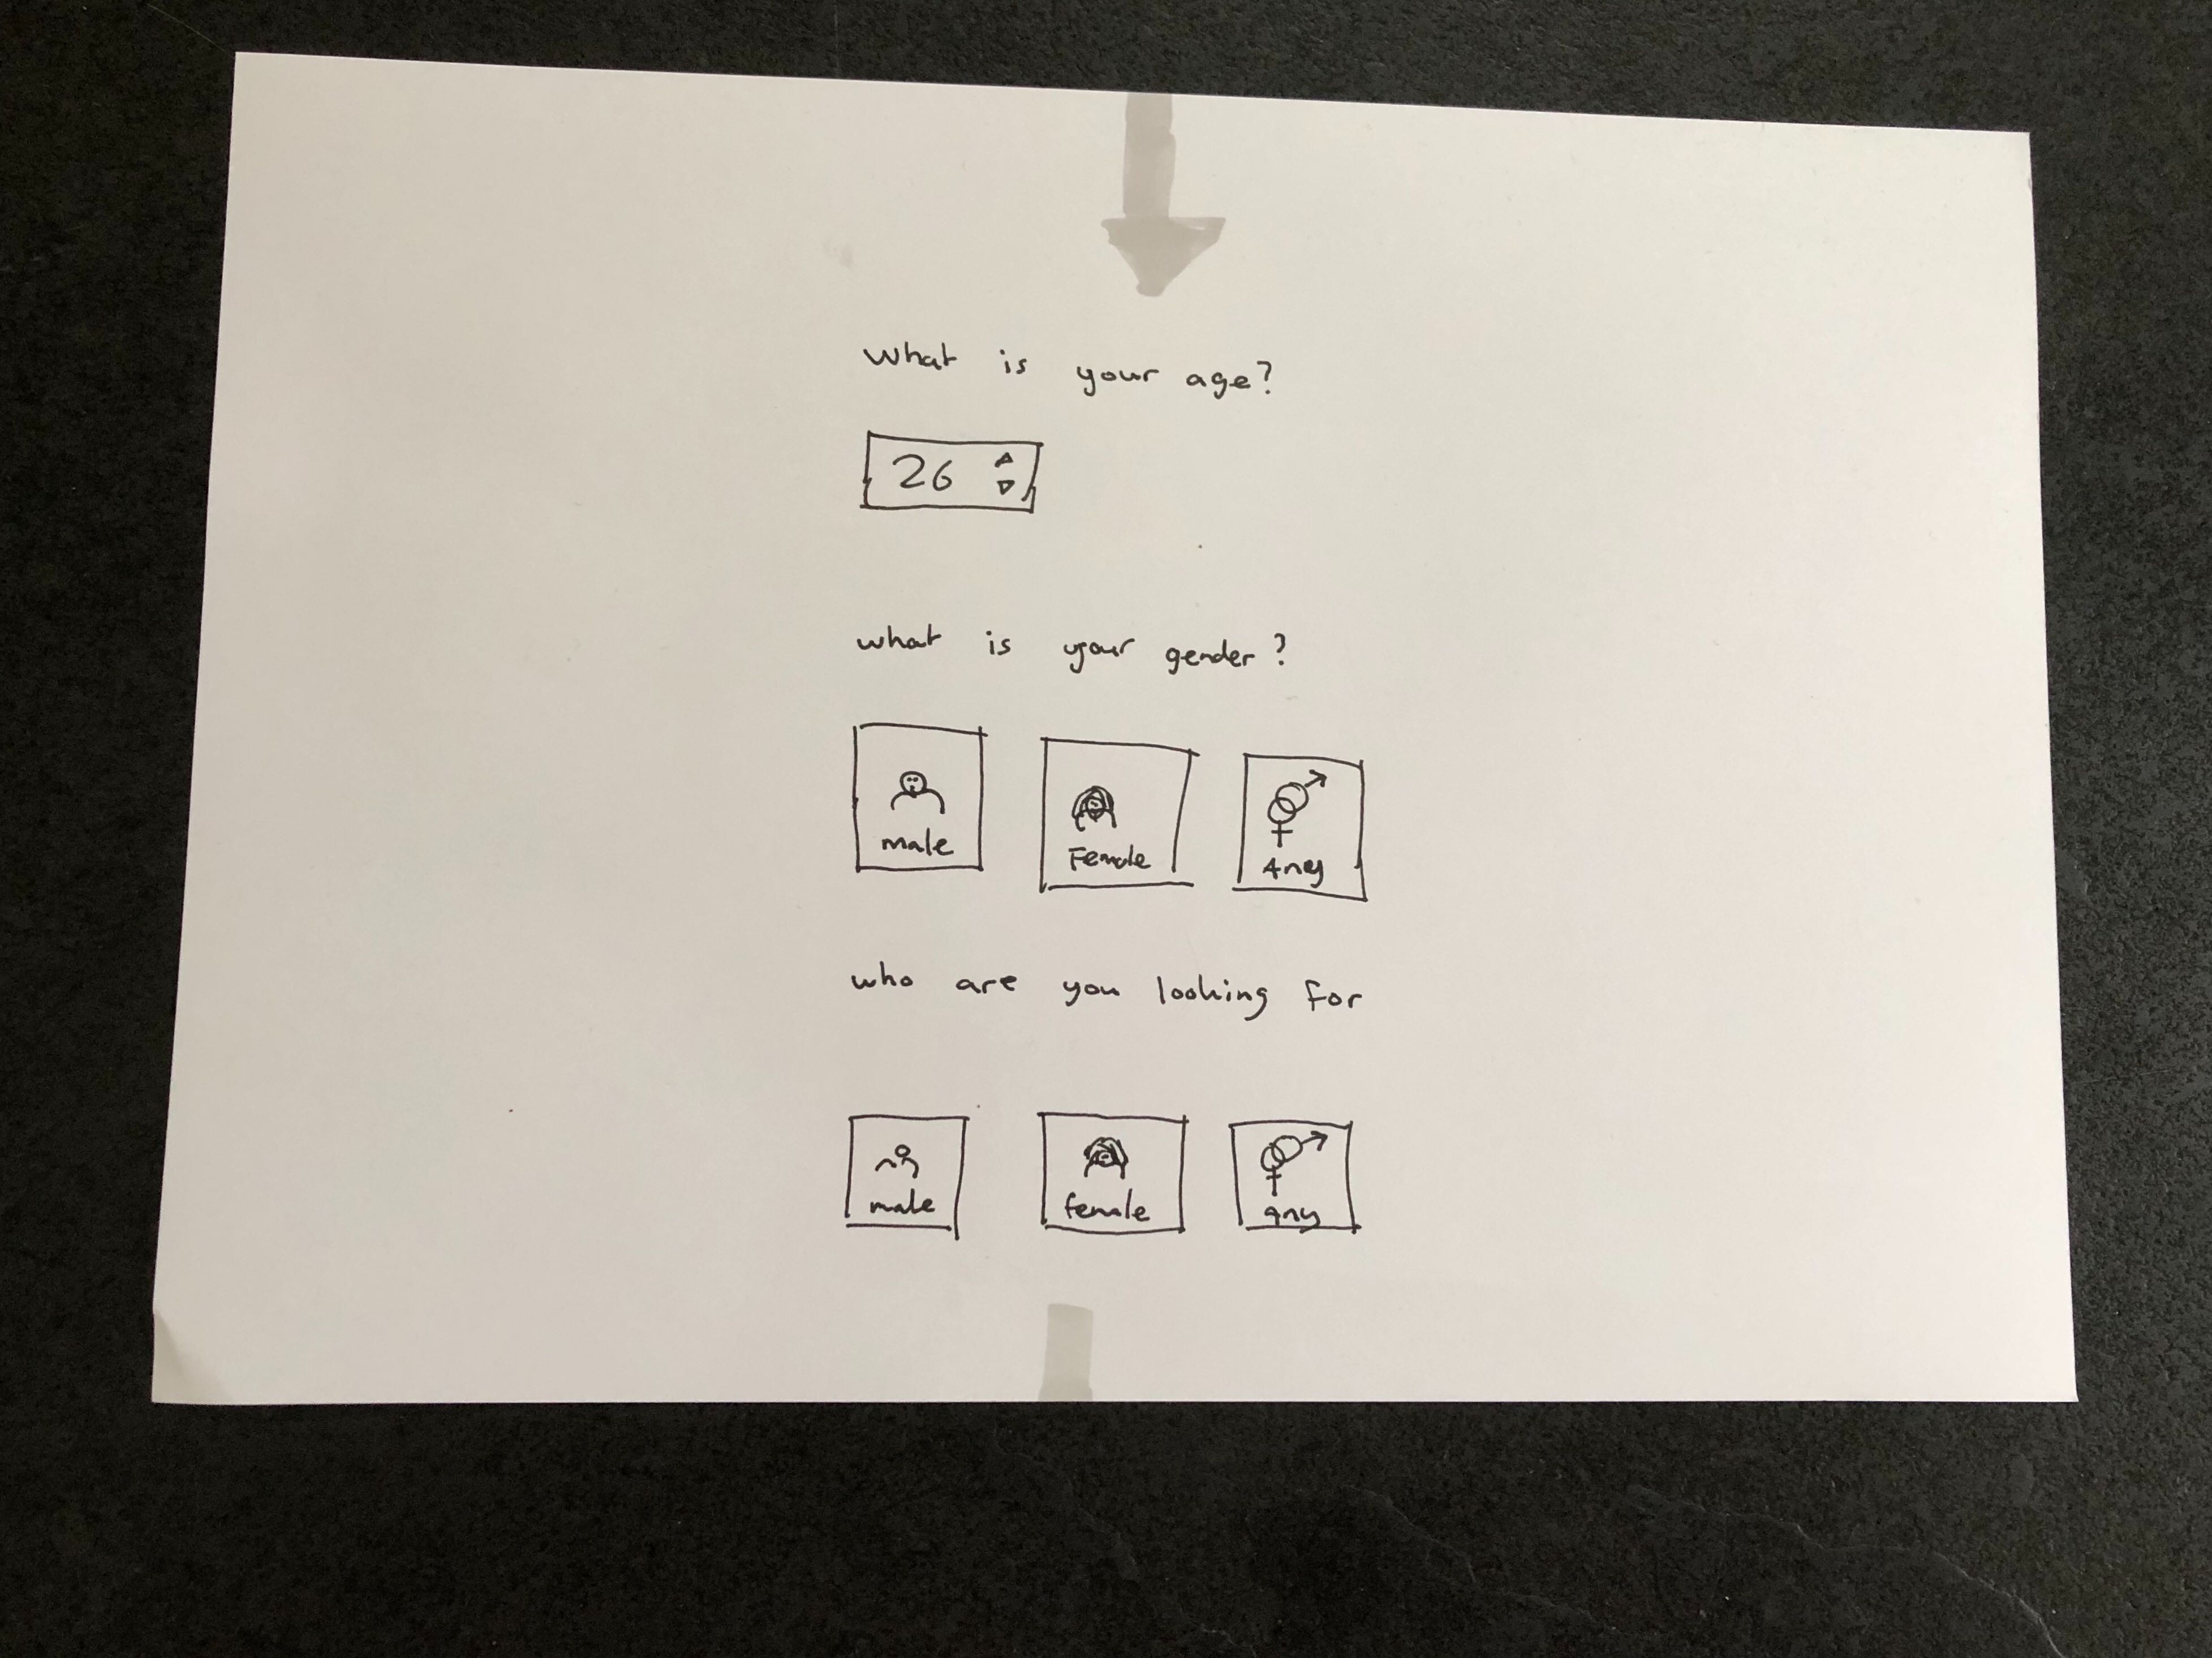 What is your age?
26
what is your gender?
male Female Any
who are you looking for
male female any